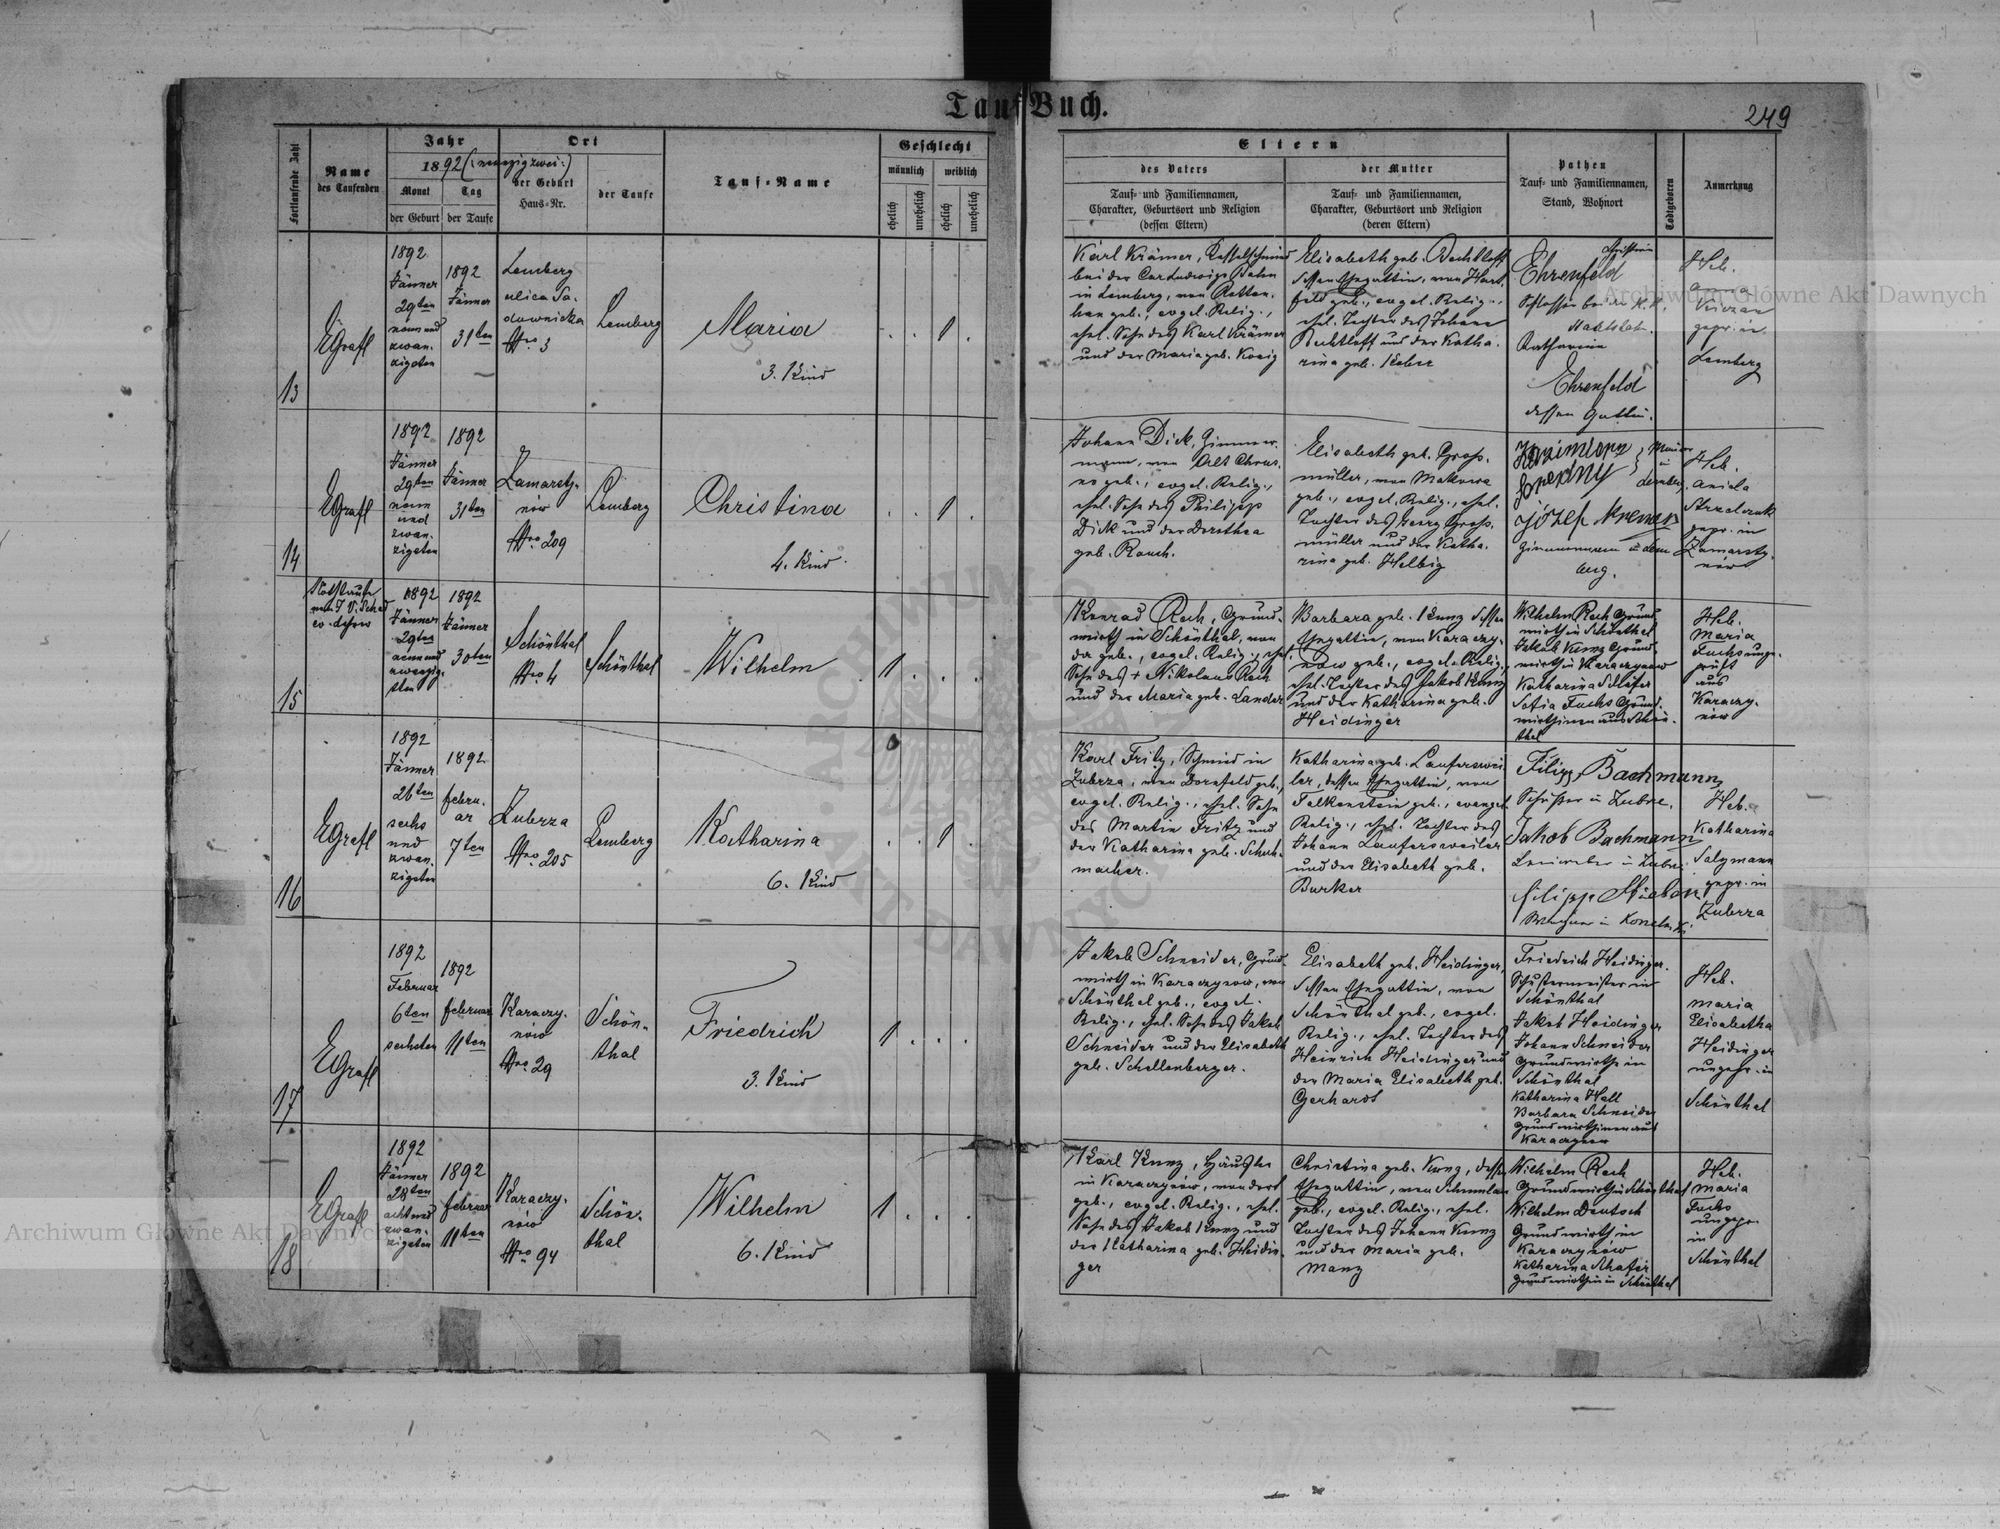 Tauf Buch.
249
Fortlaufende Zahl
Name
des Taufenden
Jahr
1892 (: neunzigzwei :)
Monat
Tag
der Geburt
der Taufe
Ort
der Geburt
Haus-Nr.
der Taufe
Tauf-Name
Geschlecht
männlich
weiblich
ehelich
unehelich
ehelich
unehelich
Eltern
des Vaters
Tauf- und Familiennamen,
Charakter, Geburtsort und Religion
(dessen Eltern)
der Mutter
Tauf- und Familiennamen,
Charakter, Geburtsort und Religion
(deren Eltern)
Pathen
Tauf- und Familiennamen,
Stand, Wohnort
Todtgeboren
Anmerkung
13
EGrafl
1892
Jänner
29ten
neun und
zwan-
zigsten
1892
Jänner
31ten
Lemberg
ulica Sa-
downicka
Nro 3
Lemberg
Maria
3. Kind
1
Karl Krämer, Kesselschmied
bei der Carl Ludwigs Bahn
in Lemberg, von Rotten-
han geb., evgel. Relig.,
ehel. Sohn des Karl Krämer
und der Maria geb. Koenig
Elisabeth geb. Bechtloff
dessen Ehegattin, von Hart-
feld geb., evgel. Relig.,
ehel. Tochter des Johann
Bechtloff und der Katha-
rina geb.
Ehrenfeld
Schlosser bei der K. K.
Katharina
Ehrenfeld
dessen Gattin.
Heb.
Anna
gepr. in
Lemberg
14
EGrafl
1892
Jänner
29ten
neun
und
zwan-
zigsten
1892
Jänner
31ten
Zamarsty-
nów
Nro 209
Lemberg
Christina
4. Kind
1
Johann Dick, Zimmer-
mann, von Alt Chrus-
no geb., evgel. Relig.,
ehel. Sohn des Philipp
Dick und der Dorothea
geb. Rauch.
Elisabeth geb. Gross-
müller, von Makowa
geb., evgel. Relig., ehel.
Tochter des Georg Gross-
müller und der Katha-
rina geb. Helbig
Maurer
in
Lemberg
Józef Kremer
Zimmermann in Lem-
berg.
Heb.
Aniela
Strzelczuk
gepr. in
Zamarsty-
nów
15
Nothtaufe
1892
Jänner
29ten
neun und
zwanzig-
sten
1892
Jänner
30ten
Schönthal
Nro 4
Schönthal
Wilhelm
1
Konrad Rech, Grund-
wirth in Schönthal, von
da geb., evgel. Relig., ehel.
Sohn des + Nikolaus Rech
und der Maria geb. Lander
Barbara geb. Kunz dessen
Ehegattin, von Karaczy-
now geb., evgel. Relig.,
ehel. Tochter des Jakob Kunz
und der Katharina geb.
Heidinger
Wilhelm Rech Grund-
wirth in Schönthal
Jakob Kunz Grund-
wirth in Karaczynow
Katharina Schäfer
Sofia Fuchs Grund-
wirthinen aus Schön-
thal
Heb.
Maria
Fuchs unge-
prüft
aus
Karaczy-
nów
16
EGrafl
1892
Jänner
26ten
sechs
und
zwan-
zigsten
1892
Febru-
ar
7ten
Zubrza
Nro 205
Lemberg
Katharina
6. Kind
1
Karl Fritz, Schmied in
Zubrza, von Dornfeld geb.,
evgel. Relig., ehel. Sohn
des Martin Fritz und
der Katharina geb. Schuh-
macher.
Katharina geb. Lauferswei-
ler, dessen Ehegattin, von
Falkenstein geb., evangel.
Relig., ehel. Tochter des
Johann Laufersweiler
und der Elisabeth geb.
Burker
Filipp Bachmann,
Jakob Bachmann
Filipp
Heb.
Katharina
Salzmann
gepr. in
Zubrza
17
EGrafl
1892
Februar
6ten
sechsten
1892
Februar
11ten
Karaczy-
nów
Nro 29
Schön-
thal
Friedrich
3. Kind
1
Jakob Schneider, Grund-
wirth in Karaczynow, von
Schönthal geb., evgel.
Relig., ehel. Sohn des Jakob
Schneider und der Elisabeth
geb. Schellenberger.
Elisabeth geb. Heidinger,
dessen Ehegattin, von
Schönthal geb., evgel.
Relig., ehel. Tochter des
Heinrich Heidinger und
der Maria Elisabeth geb.
Gerhardt
Friedrich Heidinger
Schustermeister in
Schönthal
Jakob Heidinger
Johann Schneider
Grundwirthe in
Schönthal
Katharina Hell
Barbara Schneider
Grundwirthinen aus
Karaczynow
Heb.
Maria
Elisabetha
Heidinger
ungepr. in
Schönthal
18
EGrafl
1892
Jänner
28ten
acht und
zwan-
zigsten
1892
Februar
11ten
Karaczy-
nów
Nro 94
Schön-
thal
Wilhelm
6. Kind
1
Karl Kunz, Häusler
in Karaczynów, von dort
geb., evgel. Relig., ehel.
Sohn des Jakob Kunz und
der Katharina geb. Heidin-
ger
Christina geb. Kunz, dessen
Ehegattin, von Schumlau
geb., evgel. Relig., ehel.
Tochter des Johann Kunz
und der Maria geb.
Manz
Wilhelm Rech
Grundwirth in Schönthal
Wilhelm Deutsch
Grundwirth in
Karaczynów
Katharina Schäfer
Grundwirthin in Schönthal
Heb.
Maria
Fuchs
ungepr.
in
Schönthal
Archiwum Główne Akt Dawnych
Archiwum Główne Akt Dawnych